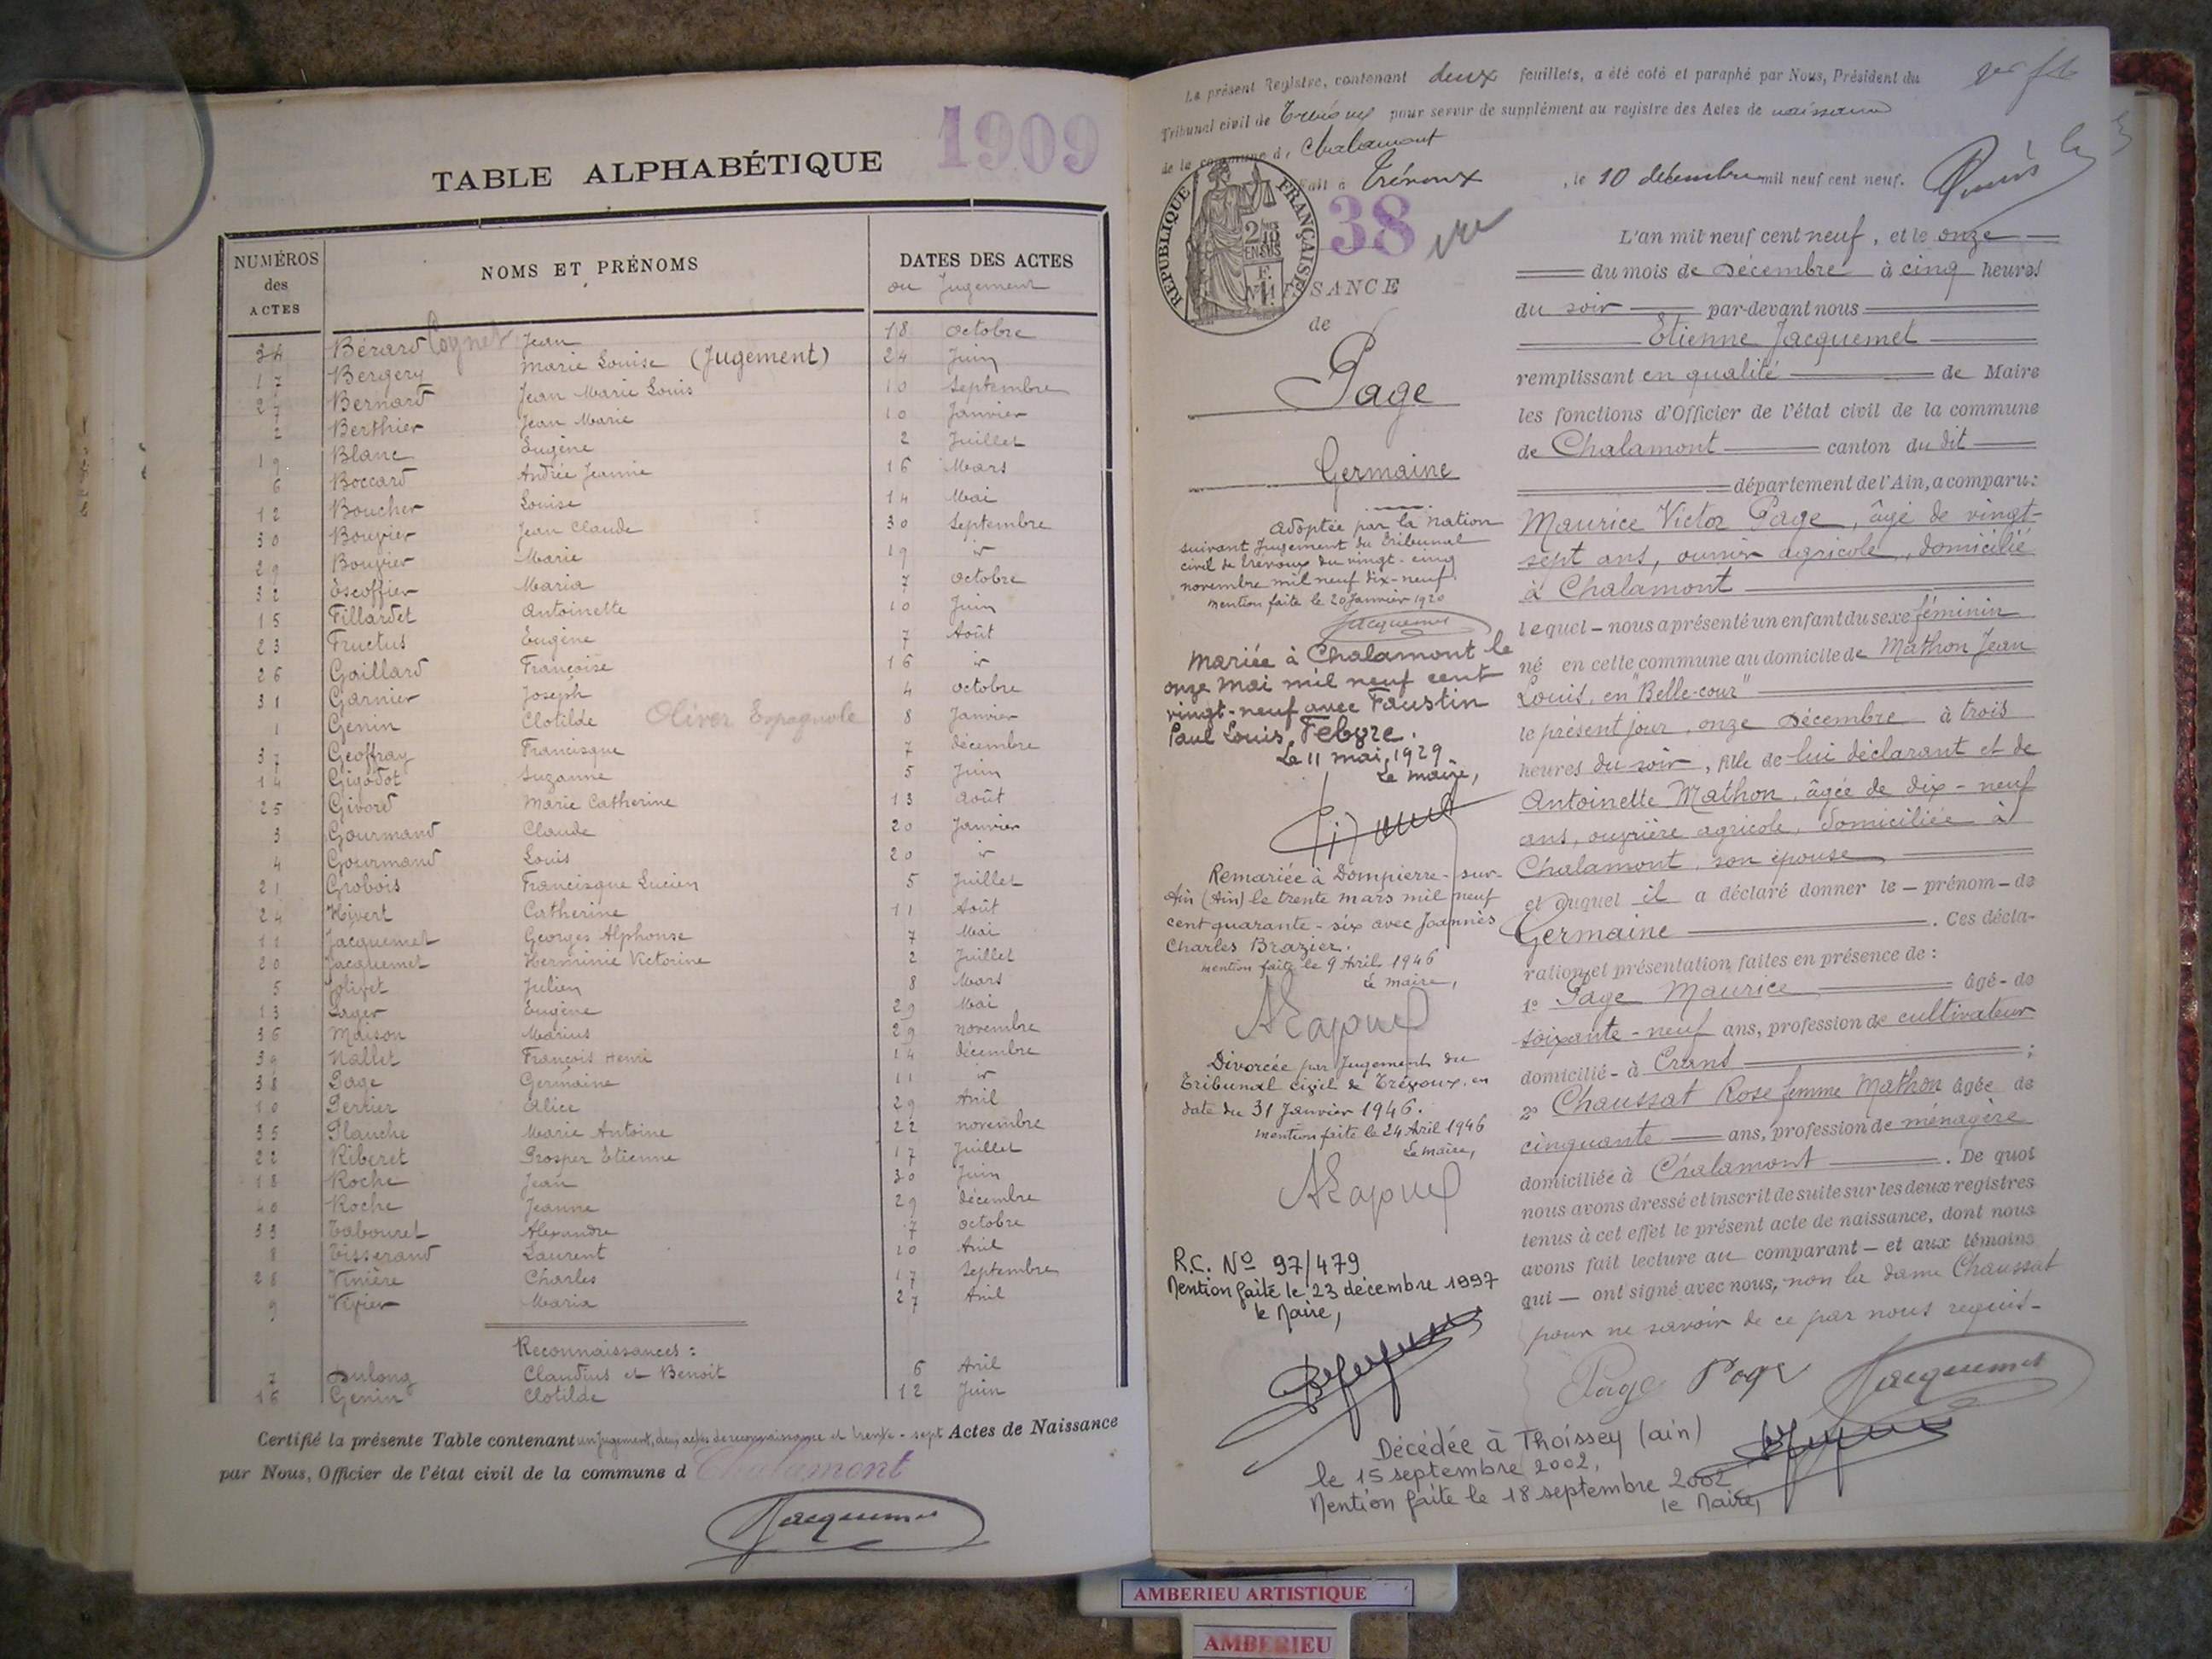 1909
TABLE ALPHABÉTIQUE
NUMÉROS des ACTES
NOMS ET PRÉNOMS
DATES DES ACTES
ou Jugement
34 Bérard Cognet Jean 18 Octobre
17 Bergery Marie Louise (Jugement) 24 Juin
27 Bernard Jean Marie Louis 10 Septembre
2 Berthier Jean Marie 10 Janvier
19 Blanc Eugène 2 Juillet
6 Boccard Andrée Jeanne 16 Mars
12 Boucher Louise 14 Mai
30 Bouvier Jean Claude 30 Septembre
29 Bouvier Marie 19 ir
32 Escoffier Maria 7 Octobre
15 Fillardet Antoinette 10 Juin
23 Fructus Eugène 7 Août
26 Gaillard Françoise 16 ir
31 Garnier Joseph 4 Octobre
1 Genin Clotilde Oliver Espagnole 8 Janvier
37 Geoffray Francisque 7 décembre
14 Gigodot Suzanne 5 Juin
25 Givord Marie Catherine 13 Août
3 Gourmand Claude 20 Janvier
4 Gourmand Louis 20 ir
21 Grobois Francisque Lucien 5 Juillet
24 Hyvert Catherine 11 Août
11 Jacquemet Georges Alphonse 7 Mai
20 Jacquemet Herminie Victorine 2 Juillet
5 Jolivet Julien 8 Mars
13 Lager Eugène 29 Mai
36 Maison Marius 29 novembre
39 Nallet François Henri 14 décembre
38 Page Germaine 11 ir
10 Perrier Alice 29 Avril
35 Planche Marie Antoine 22 novembre
22 Riberet Prosper Etienne 17 Juillet
18 Roche Jean 30 Juin
40 Roche Jeanne 29 décembre
33 Tabouret Alexandre 7 octobre
8 Tisserand Laurent 20 Avril
28 Vinière Charles 17 Septembre
9 Vivier Maria 27 Avril
Reconnaissances :
7 Dulong Claudius et Benoit 6 Avril
16 Genin Clotilde 12 Juin
Certifié la présente Table contenant un jugement, deux actes de reconnaissance et trente-sept Actes de Naissance
par Nous, Officier de l'état civil de la commune d Chalamont
Jacquemet
Le présent Registre, contenant deux feuillets, a été coté et paraphé par Nous, Président du
Tribunal civil de Trévoux pour servir de supplément au registre des Actes de naissance
de la commune d, Chalamont
Fait à Trévoux, le 10 décembre mil neuf cent neuf.
RÉPUBLIQUE FRANÇAISE
2/10 EN SUS
38
vu
SANCE
de
Page
Germaine
Adoptée par la Nation
suivant Jugement du Tribunal
civil de Trévoux du vingt-cinq
novembre mil neuf dix-neuf.
mention faite le 20 Janvier 1920
Jacquemet
Mariée à Chalamont le
onze Mai mil neuf cent
vingt-neuf avec Faustin
Paul Louis Febvre.
Le 11 mai 1929
Le maire,
Remariée à Dompierre-sur-
Ain (Ain) le trente mars mil neuf
cent quarante-six avec Joannès
Charles Brazier.
mention faite le 9 Avril 1946
Le maire,
Divorcée par Jugement du
Tribunal civil de Trévoux, en
date du 31 Janvier 1946.
mention faite le 24 Avril 1946
Le maire,
R.C. No 97/479
Mention faite le 23 décembre 1997
le Maire,
L'an mil neuf cent neuf, et le onze
du mois de Décembre à cinq heures
du soir par-devant nous
Étienne Jacquemet
remplissant en qualité de Maire
les fonctions d'Officier de l'état civil de la commune
de Chalamont canton du dit
département de l'Ain, a comparu :
Maurice Victor Page, âgé de vingt-
sept ans, ouvrier agricole, domicilié
à Chalamont
lequel - nous a présenté un enfant du sexe féminin
né en cette commune au domicile de Mathon Jean
Louis, en "Belle-cour"
le présent jour, onze Décembre à trois
heures du soir, fille de lui déclarant et de
Antoinette Mathon, âgée de dix-neuf
ans, ouvrière agricole, domiciliée à
Chalamont, son épouse
et auquel il a déclaré donner le - prénom - de
Germaine. Ces décla-
ration et présentation faites en présence de :
1° Page Maurice âgé - de
soixante-neuf ans, profession de cultivateur
domicilié - à Crans ;
2° Chaussat Rose femme Mathon âgée de
cinquante ans, profession de ménagère
domiciliée à Chalamont. De quoi
nous avons dressé et inscrit de suite sur les deux registres
tenus à cet effet le présent acte de naissance, dont nous
avons fait lecture au comparant - et aux témoins
qui - ont signé avec nous, non la dame Chaussat
pour ne savoir de ce par nous requis -
Page Page Jacquemet
Décédée à Thoissey (ain)
le 15 septembre 2002,
Mention faite le 18 septembre 2002
le Maire,
AMBERIEU ARTISTIQUE
AMBERIEU